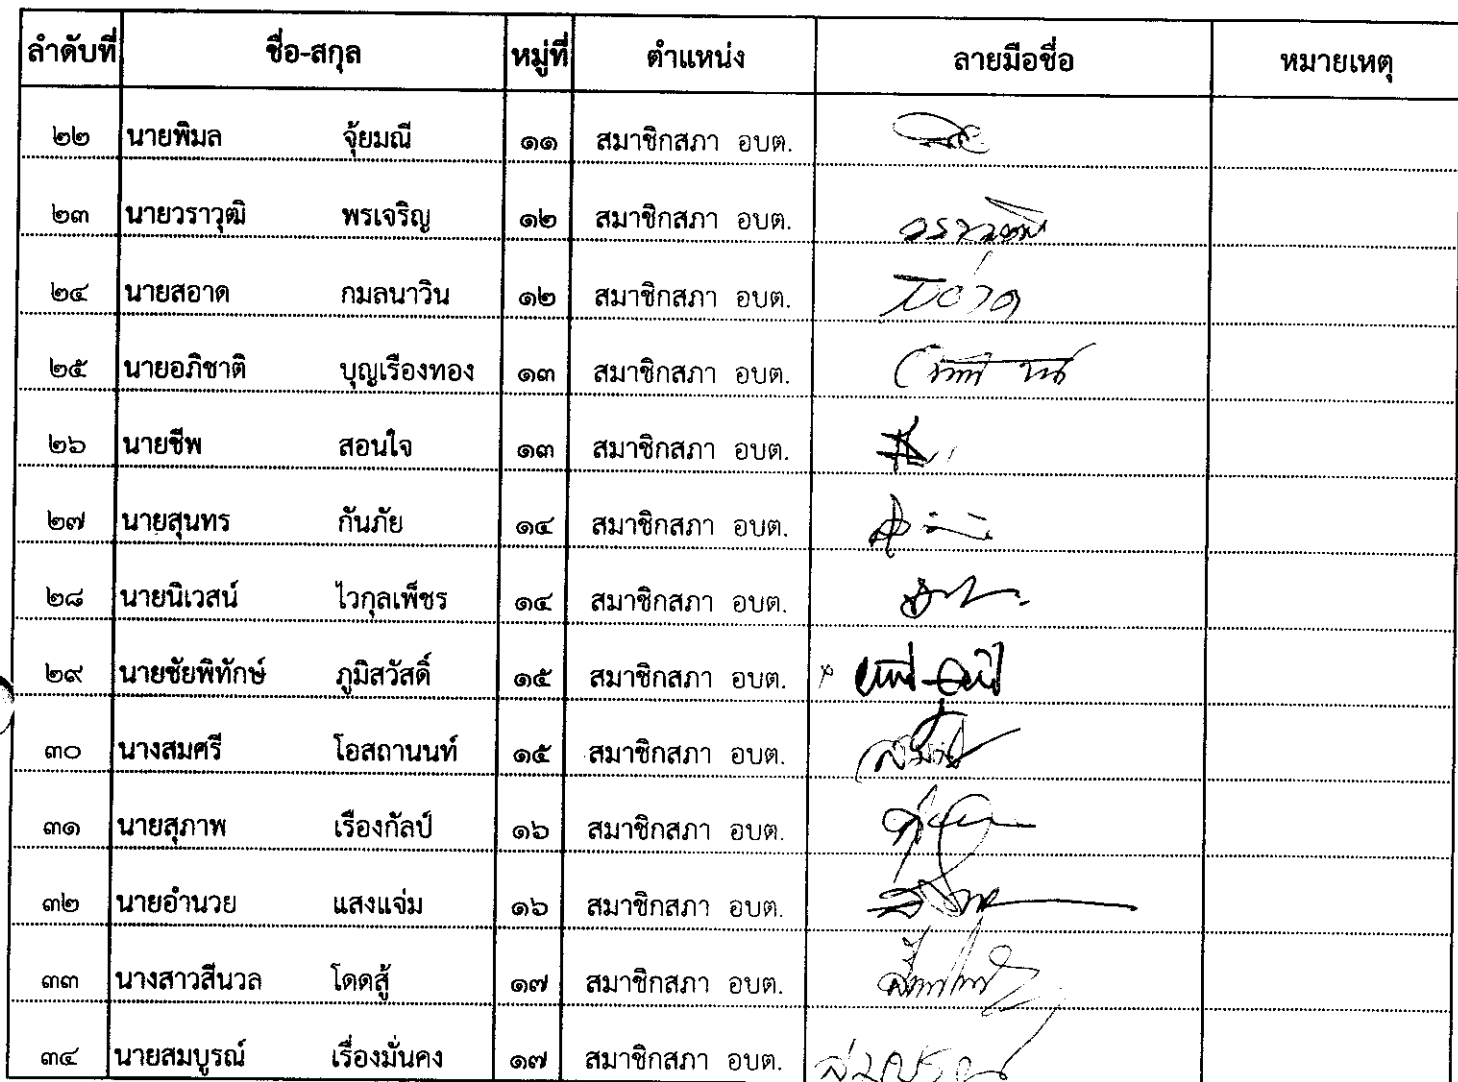 ลำดับที่ ชื่อ-สกุล หมู่ที่ ตำแหน่ง ลายมือชื่อ หมายเหตุ
๒๒ นายพิมล จุ้ยมณี ๑๑ สมาชิกสภา อบต.
๒๓ นายวราวุฒิ พรเจริญ ๑๒ สมาชิกสภา อบต.
๒๔ นายสอาด กมลนาวิน ๑๒ สมาชิกสภา อบต.
๒๕ นายอภิชาติ บุญเรืองทอง ๑๓ สมาชิกสภา อบต.
๒๖ นายชีพ สอนใจ ๑๓ สมาชิกสภา อบต.
๒๗ นายสุนทร กันภัย ๑๔ สมาชิกสภา อบต.
๒๘ นายนิเวสน์ ไวกุลเพ็ชร ๑๔ สมาชิกสภา อบต.
๒๙ นายชัยพิทักษ์ ภูมิสวัสดิ์ ๑๕ สมาชิกสภา อบต.
๓๐ นางสมศรี โอสถานนท์ ๑๕ สมาชิกสภา อบต.
๓๑ นายสุภาพ เรืองกัลป์ ๑๖ สมาชิกสภา อบต.
๓๒ นายอำนวย แสงแจ่ม ๑๖ สมาชิกสภา อบต.
๓๓ นางสาวสีนวล โดดสู้ ๑๗ สมาชิกสภา อบต.
๓๔ นายสมบูรณ์ เรื่องมั่นคง ๑๗ สมาชิกสภา อบต. สมบูรณ์